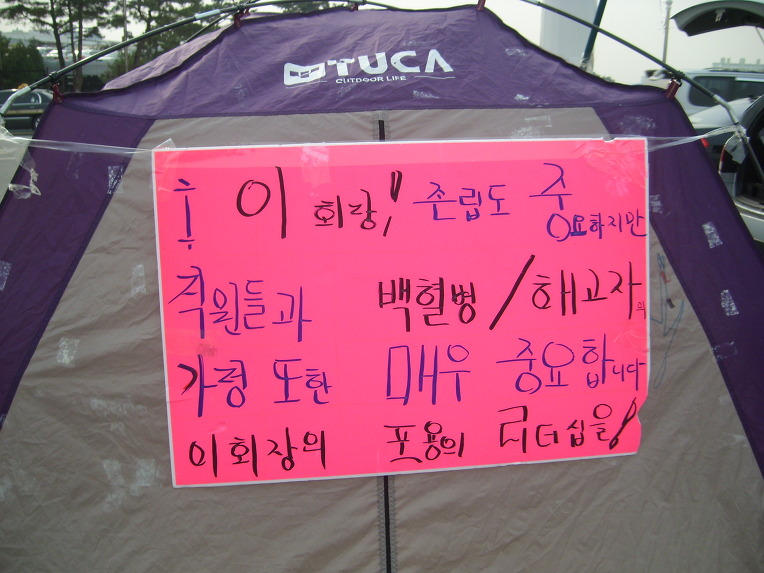 TUCA
OUTDOOR LIFE
이 회장! 존립도 중요하지만
직원들과 백혈병/해고자의
가정 또한 매우 중요합니다
이회장의 포용의 리더십을!